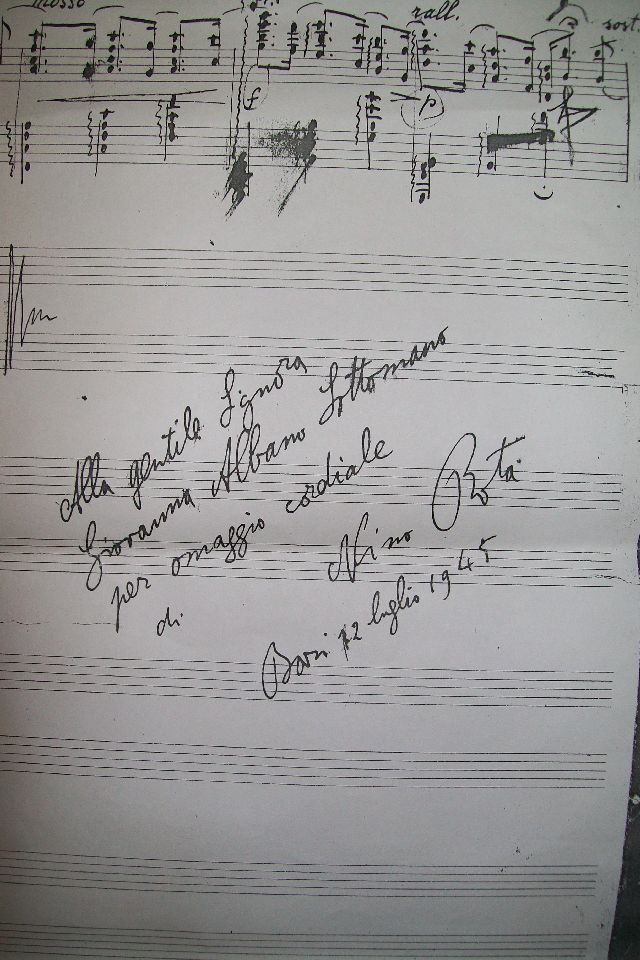 mosso
rall.
sost.
f
p
Alla gentile Signora
Giovanna Albano Sottomano
per omaggio cordiale
di
Nino Rota
Bari 12 luglio 1945